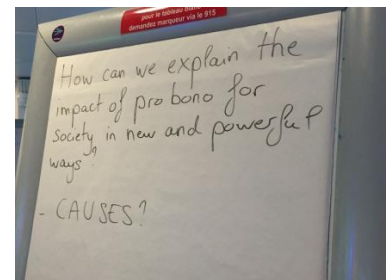 pour le tableau blanc
demandez marqueur via le 915
How can we explain the
impact of pro bono for
society in new and powerful
ways?
- CAUSES?